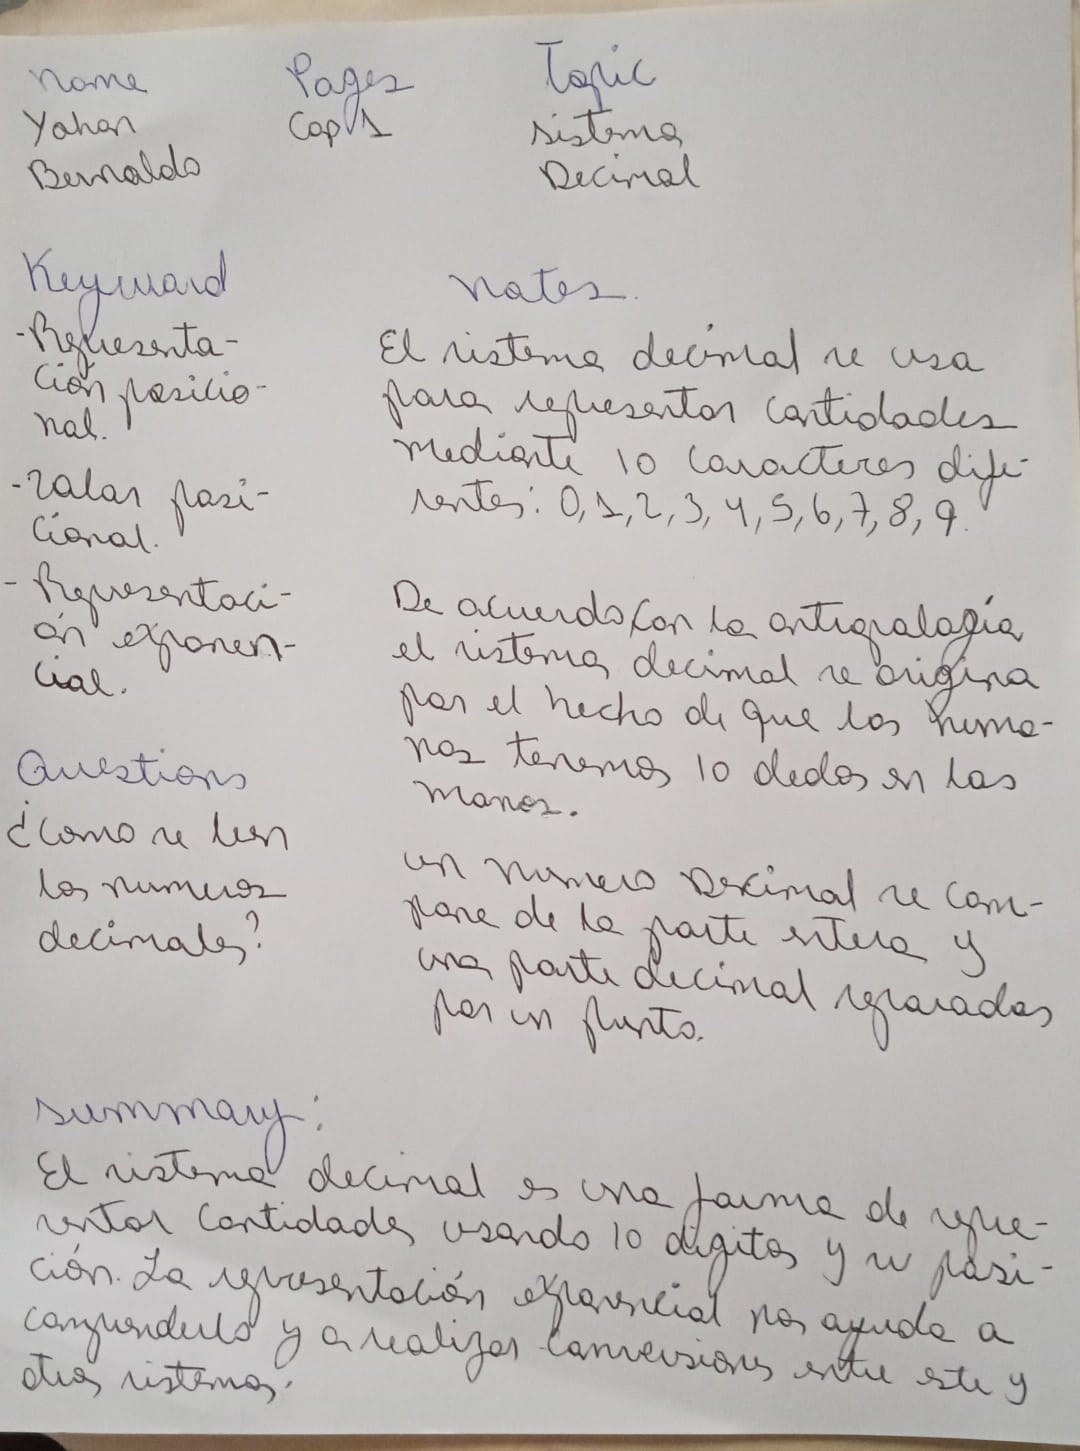 Name Pages Topic
Yohan Cap 1 sistema
Bernaldo Decimal
Keyword
-Representa-
ción posicio-
nal.
-Valor posi-
cional.
- Representaci-
ón exponen-
cial.
Questions
¿Como se leen
los numeros
decimales?
Notes.
El sistema decimal se usa
para representar cantidades
mediante 10 caracteres dife-
rentes: 0,1,2,3,4,5,6,7,8,9.
De acuerdo con la antropología
el sistema decimal se origina
por el hecho de que los huma-
nos tenemos 10 dedos en las
manos.
un numero Decimal se com-
pone de la parte entera y
una parte decimal separadas
por un punto.
summary:
El sistema decimal es una forma de repre-
sentar cantidades usando 10 digitos y su posi-
ción. La representación exponencial nos ayuda a
comprenderlo y a realizar conversiones entre este y
otros sistemas.